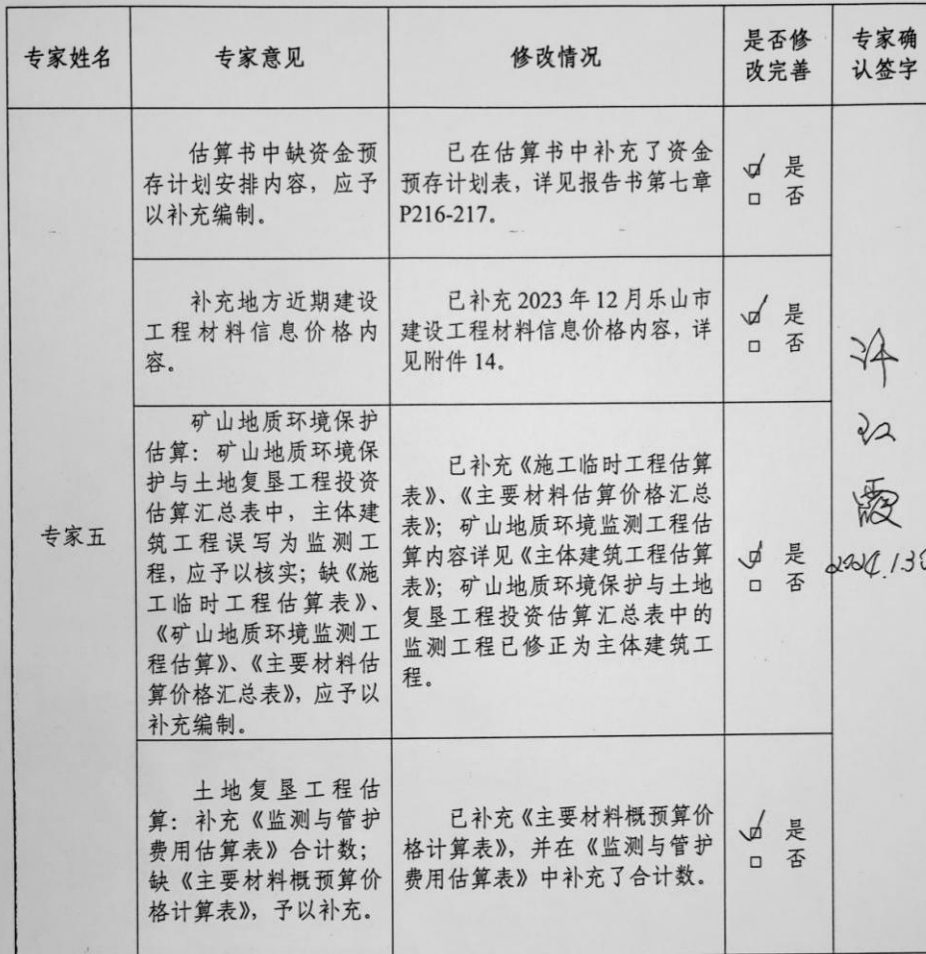 专家姓名
专家意见
修改情况
是否修
改完善
专家确
认签字
专家五
估算书中缺资金预
存计划安排内容，应予
以补充编制。
已在估算书中补充了资金
预存计划表，详见报告书第七章
P216-217。
☑ 是
□ 否
补充地方近期建设
工程材料信息价格内
容。
已补充 2023 年 12 月乐山市
建设工程材料信息价格内容，详
见附件 14。
☑ 是
□ 否
矿山地质环境保护
估算：矿山地质环境保
护与土地复垦工程投资
估算汇总表中，主体建
筑工程误写为监测工
程，应予以核实；缺《施
工临时工程估算表》、
《矿山地质环境监测工
程估算》、《主要材料估
算价格汇总表》，应予以
补充编制。
已补充《施工临时工程估算
表》、《主要材料估算价格汇总
表》；矿山地质环境监测工程估
算内容详见《主体建筑工程估算
表》；矿山地质环境保护与土地
复垦工程投资估算汇总表中的
监测工程已修正为主体建筑工
程。
☑ 是
□ 否
土地复垦工程估
算：补充《监测与管护
费用估算表》合计数；
缺《主要材料概预算价
格计算表》，予以补充。
已补充《主要材料概预算价
格计算表》，并在《监测与管护
费用估算表》中补充了合计数。
☑ 是
□ 否
许
红
霞
2024.1.30